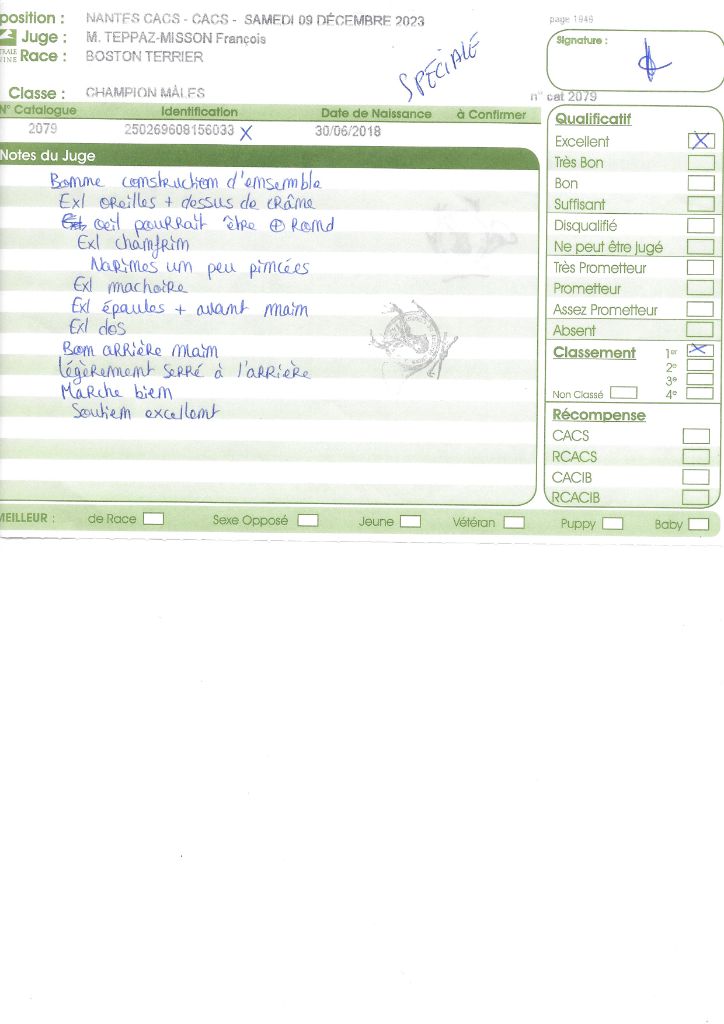 position : NANTES CACS - CACS - SAMEDI 09 DÉCEMBRE 2023
page 1949
Juge : M. TEPPAZ-MISSON François
TRALE
NINE
Race : BOSTON TERRIER
SPÉCIALE
Signature :
Classe : CHAMPION MÂLES
n° cat 2079
N° Catalogue Identification Date de Naissance à Confirmer
2079 250269608156033 X 30/06/2018
Notes du Juge
Bonne construction d'ensemble
Exl oreilles + dessus de crâme
oeil pourrait être + rond
Exl chanfrin
Narines un peu pincées
Exl machoire
Exl épaules + avant main
Exl dos
Bon arrière main
légèrement serré à l'arrière
Marche bien
Soutien excellent
Qualificatif
Excellent X
Très Bon
Bon
Suffisant
Disqualifié
Ne peut être jugé
Très Prometteur
Prometteur
Assez Prometteur
Absent
Classement 1er X
2e
3e
Non Classé 4e
Récompense
CACS
RCACS
CACIB
RCACIB
MEILLEUR : de Race Sexe Opposé Jeune Vétéran Puppy Baby